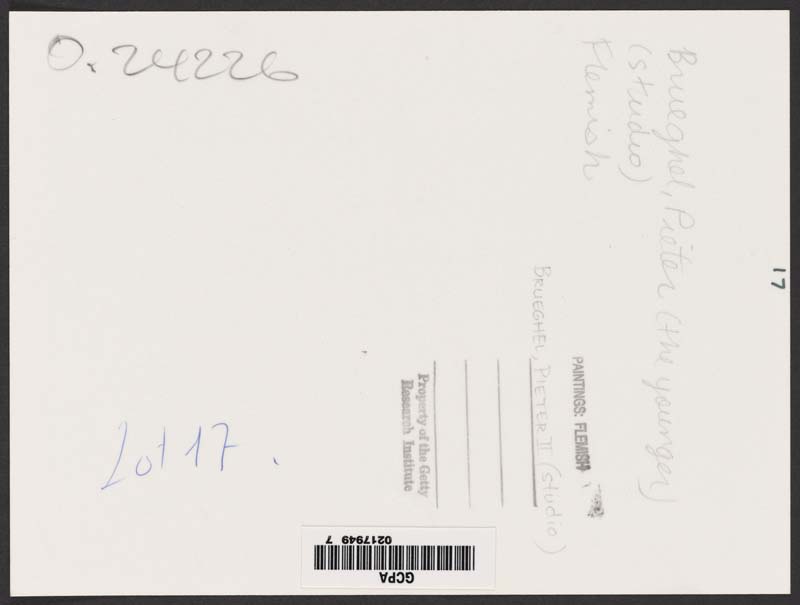 O. 24226
Brueghel, Pieter (the younger)
(studio)
Flemish
17
PAINTINGS: FLEMISH
BRUEGHEL, PIETER II (studio)
Property of the Getty
Research Institute
Lot 17.
0217949 7
GCPA